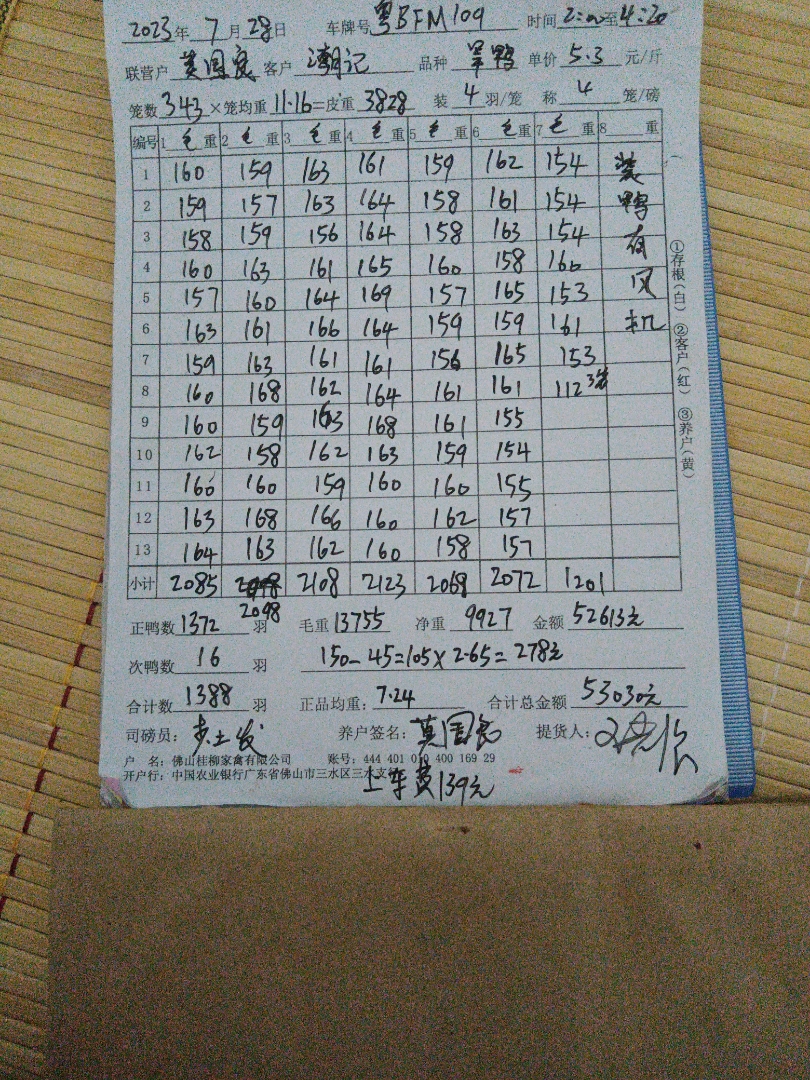 2023年 7 月 28日 车牌号 粤BFM109 时间 2:00至4:20
联营户 莫国民 客户 潮记 品种 旱鸭 单价 5.3 元/斤
笼数 343 ×笼均重 11.16=皮重 3828 装 4 羽/笼 称 4 笼/磅
编号 1 毛 重 2 毛 重 3 毛 重 4 毛 重 5 毛 重 6 毛重 7 毛 重 8 重
1 160 159 163 161 159 162 154 装
2 159 157 163 164 158 161 154 鸭
3 158 159 156 164 158 163 154 有
4 160 163 161 165 160 158 160 风
5 157 160 164 169 157 165 153 机
6 163 161 166 164 159 159 161
7 159 163 161 161 156 165 153
8 160 168 162 164 161 161 112 3笼
9 160 159 163 168 161 155
10 162 158 162 163 159 154
11 160 159 160 160 155
12 163 168 166 160 162 157
13 164 163 162 160 158 157
小计 2085 2098 2108 2123 2069 2072 1201
正鸭数 1372 羽 毛重 13755 净重 9927 金额 52613元
次鸭数 16 羽 150-45=105×2.65=278元
合计数 1388 羽 正品均重: 7.24 合计总金额 53030元
司磅员: 养户签名: 莫国民 提货人:
户 名: 佛山桂柳家禽有限公司 账号: 444 401 010 400 169 29
开户行: 中国农业银行广东省佛山市三水区三水支行
上车费139元
①存根(白) ②客户(红) ③养户(黄)